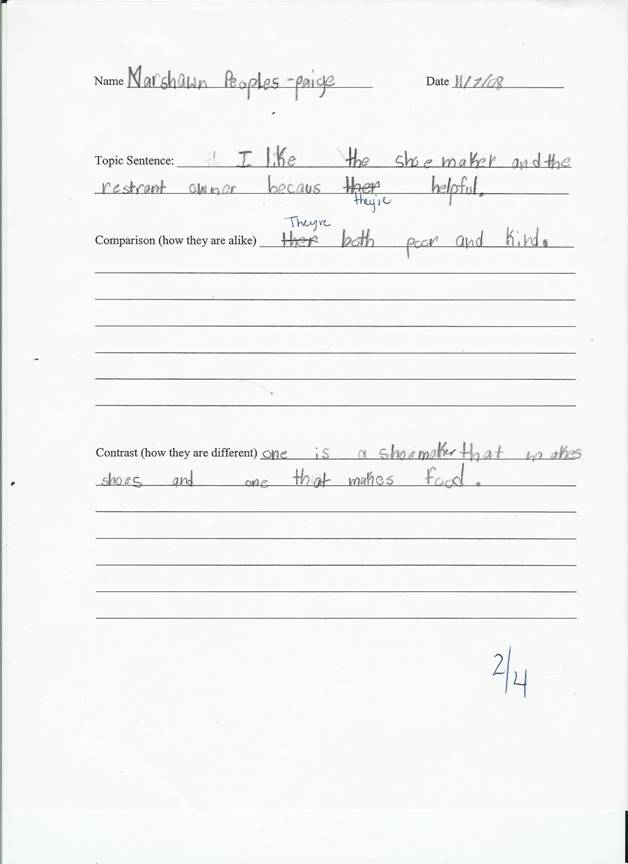 Name Marshawn Peoples-paige Date 11/7/08
Topic Sentence: I like the shoe maker and the
restrant owner becaus ther helpful.
theyre
Theyre
Comparison (how they are alike) ther both poor and kind.
Contrast (how they are different) one is a shoemaker that makes
shoes and one that makes food.
2/4